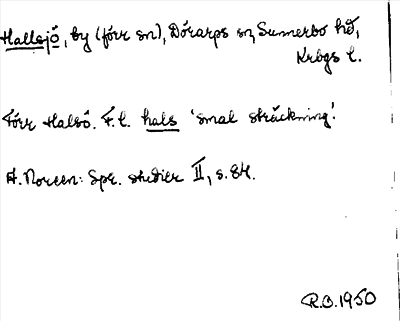 Hallsjö, by (förr sn), Dörarps sn, Sunnerbo hd,
Krbgs l.
Förr Halsö. F. l. hals 'smal sträckning'.
A. Noreen: Spr. studier II, s. 84.
R.O. 1950